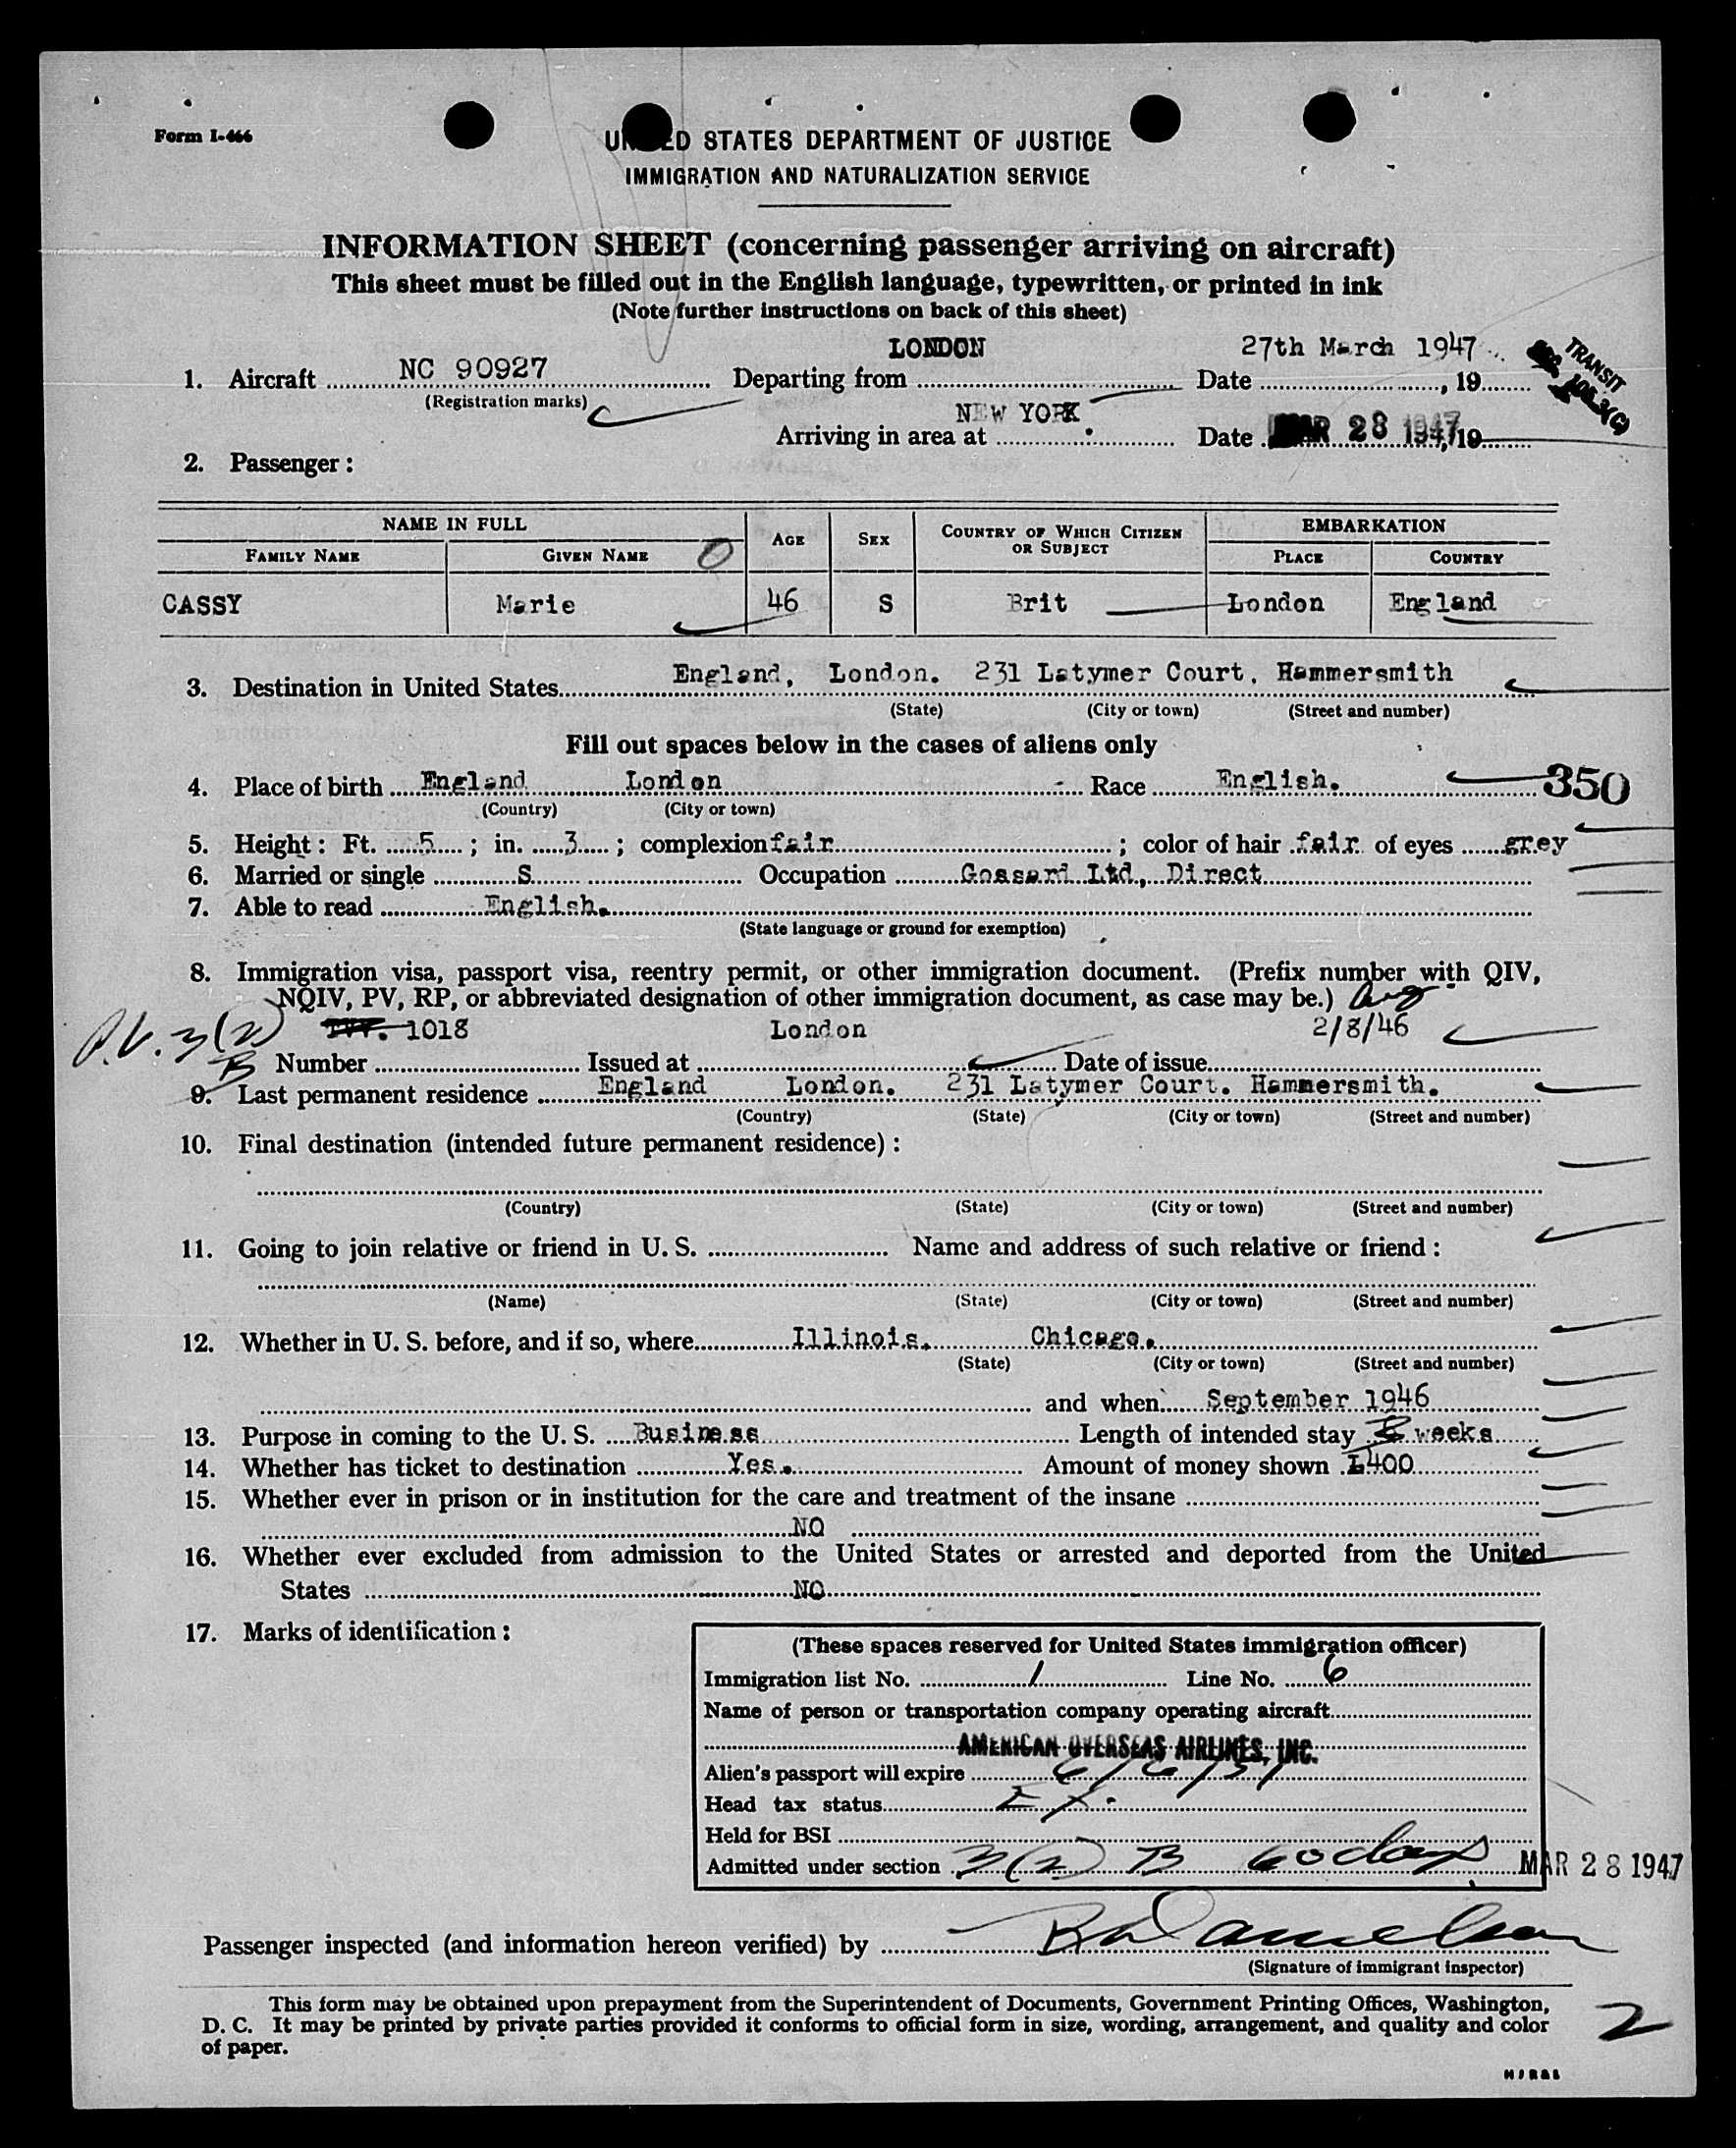 Form I-466
UNITED STATES DEPARTMENT OF JUSTICE
IMMIGRATION AND NATURALIZATION SERVICE
INFORMATION SHEET (concerning passenger arriving on aircraft)
This sheet must be filled out in the English language, typewritten, or printed in ink
(Note further instructions on back of this sheet)
1. Aircraft NC 90927 Departing from LONDON Date 27th March 1947, 19
(Registration marks)
TRANSIT
Arriving in area at NEW YORK Date MAR 28 1947, 19
2. Passenger:
NAME IN FULL AGE SEX COUNTRY OF WHICH CITIZEN OR SUBJECT EMBARKATION
FAMILY NAME GIVEN NAME PLACE COUNTRY
CASSY Marie 46 S Brit London England
3. Destination in United States England, London. 231 Latymer Court, Hammersmith
(State) (City or town) (Street and number)
Fill out spaces below in the cases of aliens only
4. Place of birth England London Race English. 350
(Country) (City or town)
5. Height: Ft. 5; in. 3; complexion fair; color of hair fair of eyes grey
6. Married or single S Occupation Gossard Ltd, Direct
7. Able to read English.
(State language or ground for exemption)
8. Immigration visa, passport visa, reentry permit, or other immigration document. (Prefix number with QIV,
NQIV, PV, RP, or abbreviated designation of other immigration document, as case may be.) Aug
P.V. 3(2) B
Number 1018 Issued at London Date of issue 2/8/46
9. Last permanent residence England London. 231 Latymer Court. Hammersmith.
(Country) (State) (City or town) (Street and number)
10. Final destination (intended future permanent residence):
(Country) (State) (City or town) (Street and number)
11. Going to join relative or friend in U. S. Name and address of such relative or friend:
(Name) (State) (City or town) (Street and number)
12. Whether in U. S. before, and if so, where Illinois. Chicago.
(State) (City or town) (Street and number)
and when September 1946
13. Purpose in coming to the U. S. Business Length of intended stay weeks
14. Whether has ticket to destination Yes. Amount of money shown £400
15. Whether ever in prison or in institution for the care and treatment of the insane
NO
16. Whether ever excluded from admission to the United States or arrested and deported from the United
States NO
17. Marks of identification:
(These spaces reserved for United States immigration officer)
Immigration list No. 1 Line No. 6
Name of person or transportation company operating aircraft
AMERICAN OVERSEAS AIRLINES, INC.
Alien's passport will expire 6/6/51
Head tax status Ex.
Held for BSI
Admitted under section 3(2) B 60 days MAR 28 1947
Passenger inspected (and information hereon verified) by
(Signature of immigrant inspector)
This form may be obtained upon prepayment from the Superintendent of Documents, Government Printing Offices, Washington,
D. C. It may be printed by private parties provided it conforms to official form in size, wording, arrangement, and quality and color
of paper.
2